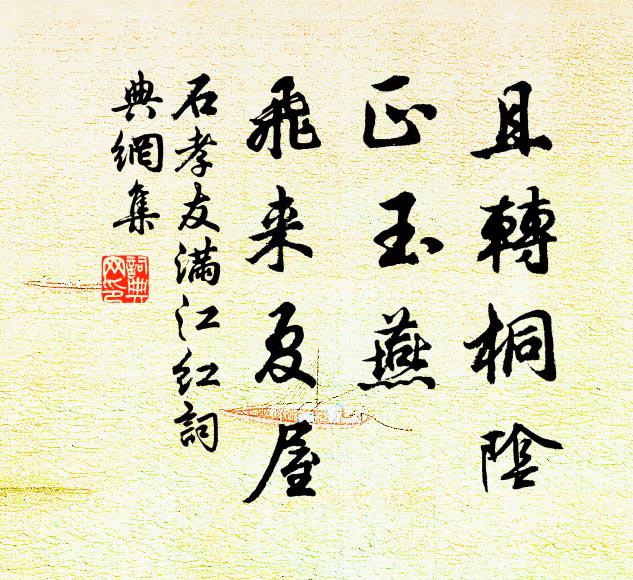 且轉桐陰
正玉燕
飛来夏屋
石孝友滿江红詞
典網集
詞典网印